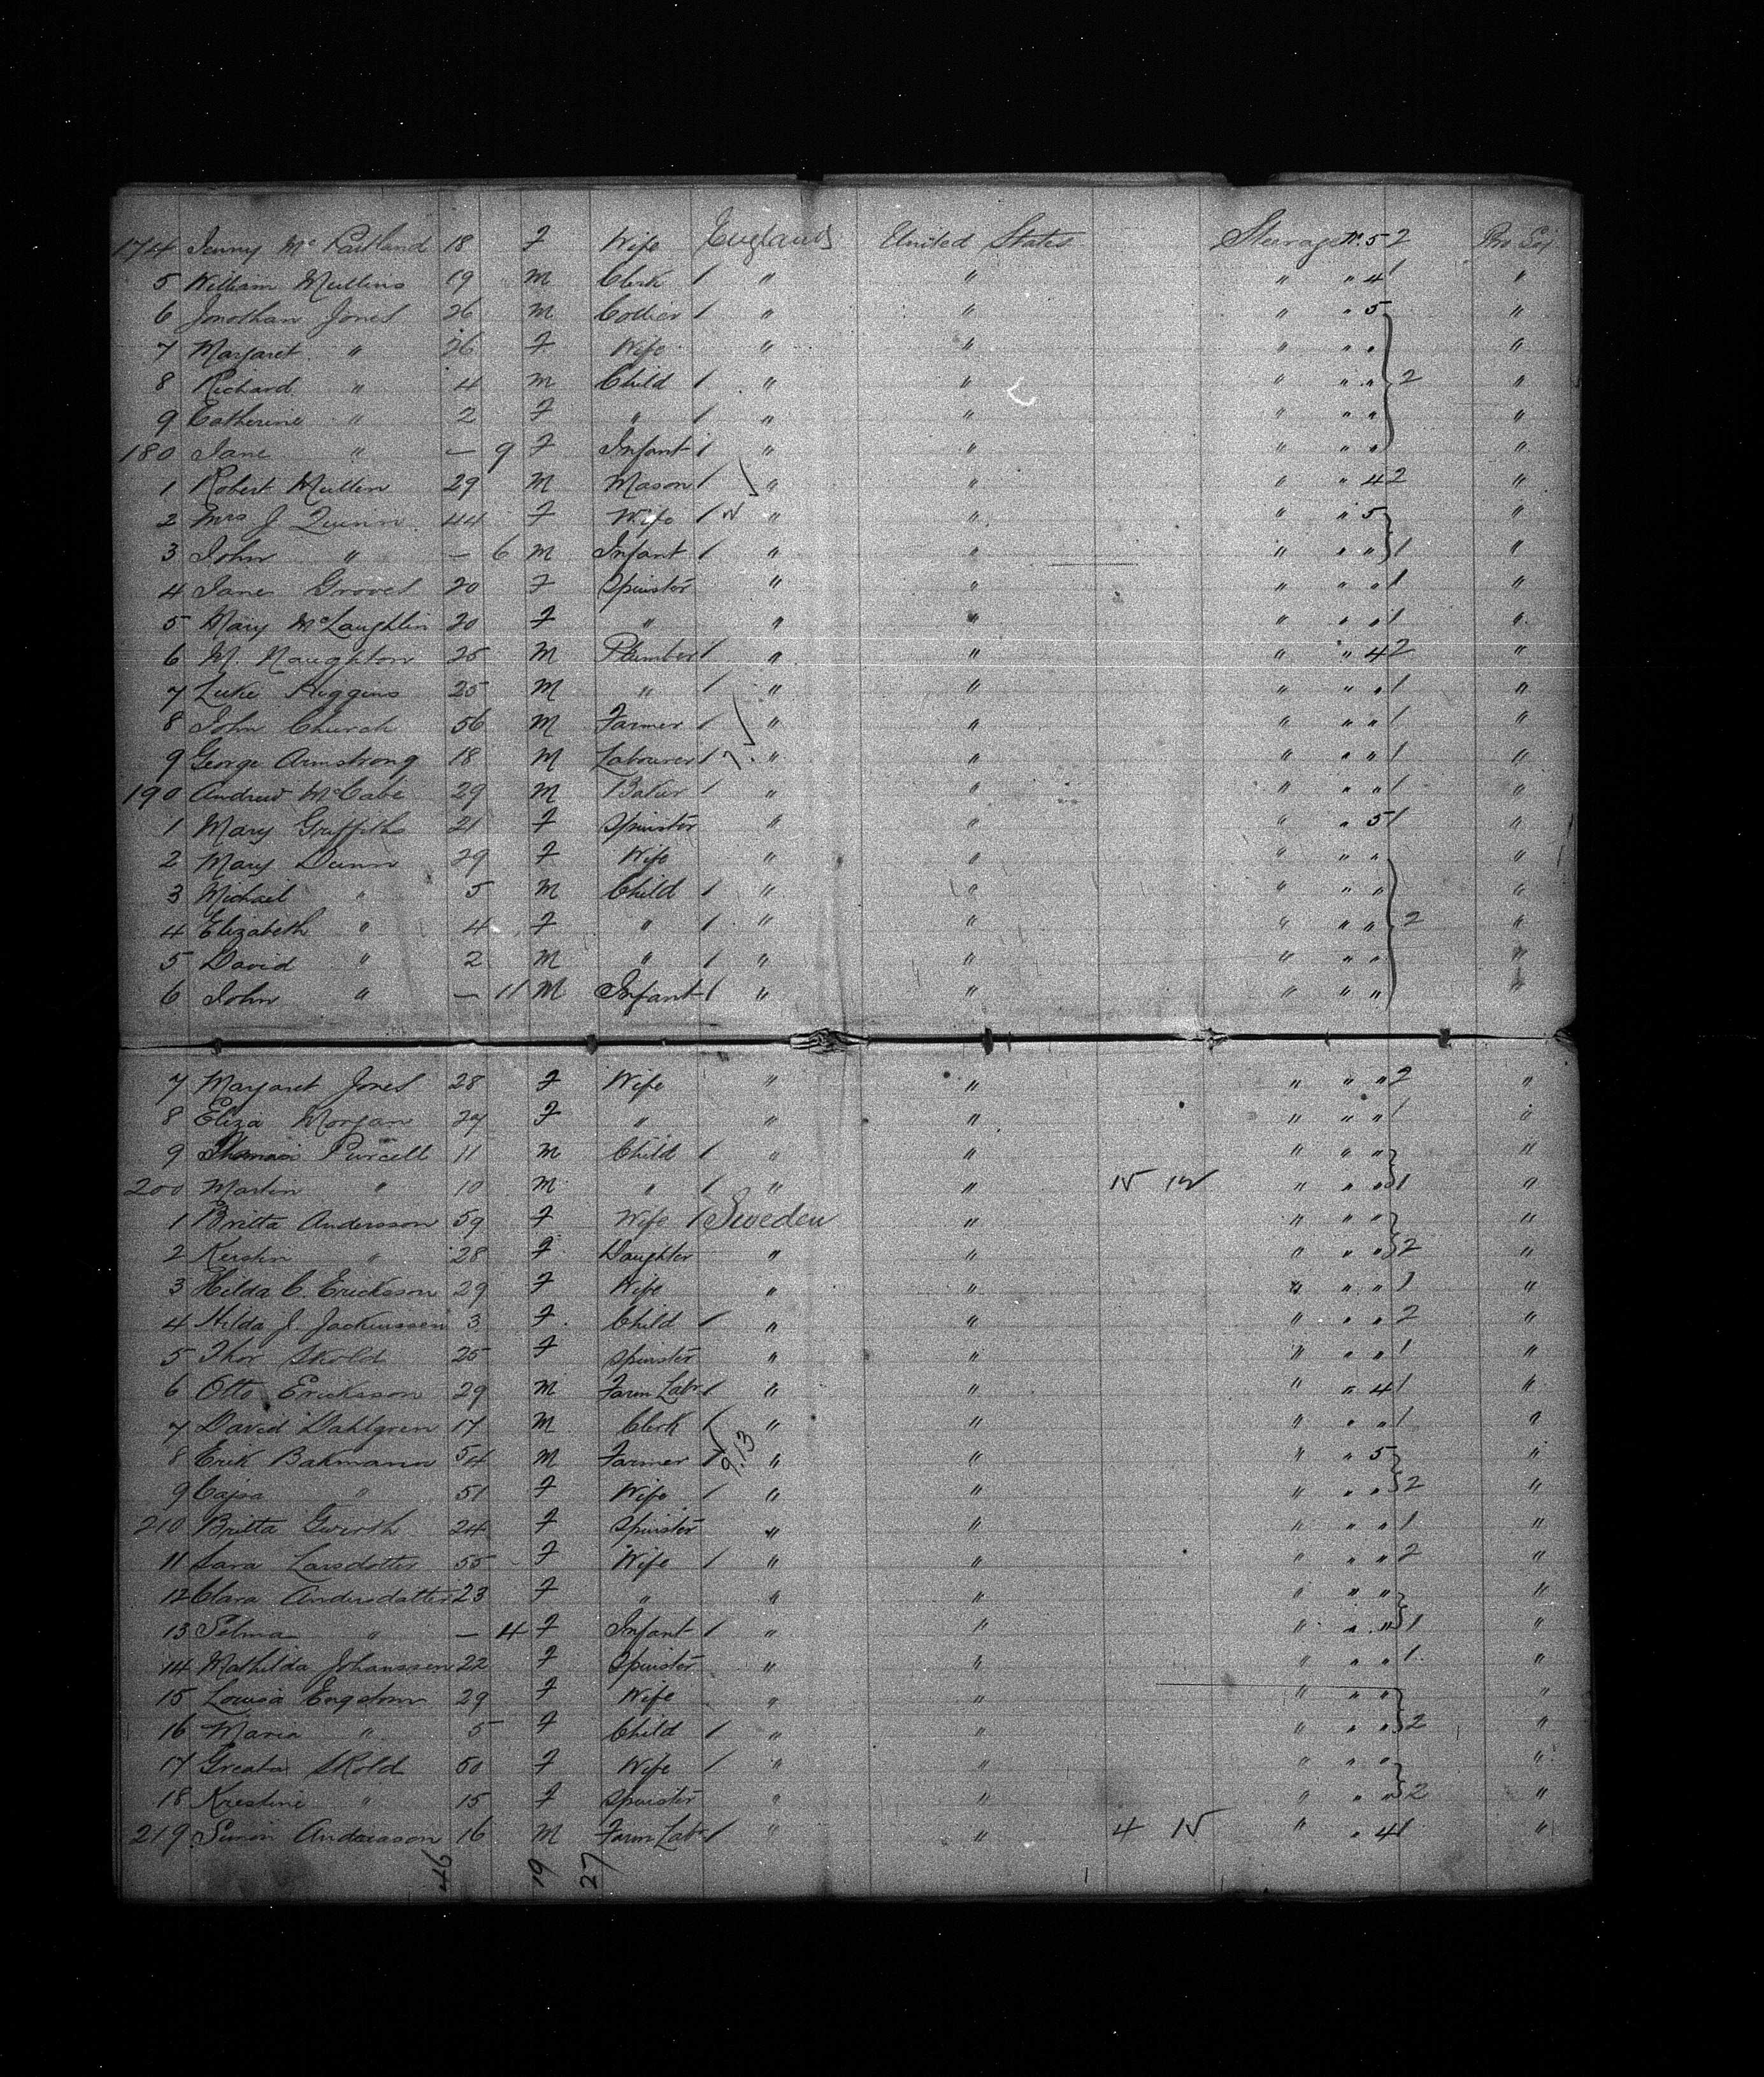 174 Jenny Mc Partland 18 F Wife England United States Steerage No. 5 2 Pro Soj
5 William Mullins 19 M Clerk 1 " " " " 4 1 "
6 Jonothan Jones 26 M Collier 1 " " " " 5 "
7 Margaret " 26 F Wife " " " " " "
8 Richard " 4 M Child 1 " " " " " 2 "
9 Catherine " 2 F " 1 " " " " " "
180 Jane " — 9 F Infant 1 " " " " " "
1 Robert Mullen 29 M Mason 1 " " " " 4 2 "
2 Mrs J Quinn 44 F Wife 1 " " " " 5 "
3 John " — 6 M Infant 1 " " " " " 1 "
4 Jane Groves 20 F Spinster " " " " " 1 "
5 Mary McLaughlin 20 F " " " " " " 1 "
6 M. Naughton 25 M Plumber 1 " " " " 4 2 "
7 Luke Higgins 25 M " 1 " " " " " 1 "
8 John Church 56 M Farmer 1 " " " " " 1 "
9 George Armstrong 18 M Labourer 1 7 " " " " " 1 "
190 Andrew McCabe 29 M Baker 1 " " " " " 1 "
1 Mary Griffiths 21 F Spinster " " " " 5 1 "
2 Mary Dunn 29 F Wife " " " " " "
3 Michael " 5 M Child 1 " " " " " "
4 Elizabeth " 4 F " 1 " " " " " 2 "
5 David " 2 M " 1 " " " " " "
6 John " — 11 M Infant 1 " " " " " "
7 Margaret Jones 28 F Wife " " " " " 2 "
8 Eliza Morgan 27 F " " " " " " 1 "
9 Thomas Purcell 11 M Child 1 " " " " " "
200 Martin " 10 M " 1 " " " " " 1 "
1 Britta Andersson 59 F Wife 1 Sweden " " " " "
2 Kerstin " 28 F Daughter " " " " " 2 "
3 Hilda C. Ericksson 29 F Wife " " " " " 1 "
4 Hilda J. 3 F Child 1 " " " " " 2 "
5 Thor Skold 25 F Spinster " " " " " 1 "
6 Otto Ericksson 29 M Farm Labr 1 " " " " 4 1 "
7 David Dahlgren 17 M Clerk 1 " " " " " 1 "
8 Erik Bakmann 54 M Farmer 1 9.13 " " " " 5 "
9 Cajsa " 51 F Wife 1 " " " " " 2 "
210 Britta 24 F Spinster " " " " " 1 "
11 Sara Larsdotter 55 F Wife 1 " " " " " 2 "
12 Clara Andersdatter 23 F " " " " " " "
13 Selma " — 4 F Infant 1 " " " " " 1 "
14 Mathilda Johanssen 22 F Spinster " " " " " 1 "
15 Lousia Engstom 29 F Wife " " " " " "
16 Maria " 5 F Child 1 " " " " " 2 "
17 Greata Skold 50 F Wife 1 " " " " " "
18 Krestine " 15 F Spinster " " " " " 2 "
219 Simon Andersson 16 M Farm Labr 1 " " 4 15 " " 4 1 "
46 19 27